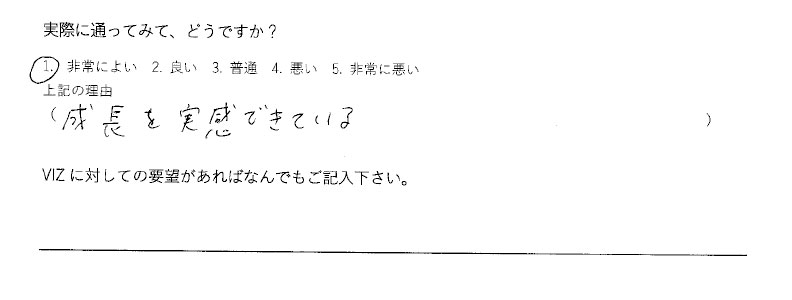 実際に通ってみて、どうですか？
1. 非常によい 2. 良い 3. 普通 4. 悪い 5. 非常に悪い
上記の理由
（成長を実感できている）
VIZに対しての要望があればなんでもご記入下さい。